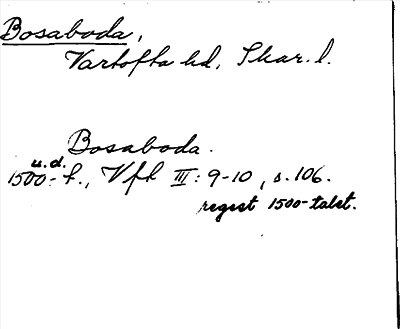 Bosaboda,
Vartofta hd, Skar. l.
Bosaboda.
u.d.
1500-t., Vfk III: 9-10, s. 106.
regest 1500-talet.